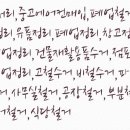 리,중고에어컨매입,폐업철거
리,유품정리,폐업정리,창고정
업정리,건물재활용품수거,점포
업정리,고철수거,비철수거,
사무실철거,공장철거,부분철
거철거 식당철거